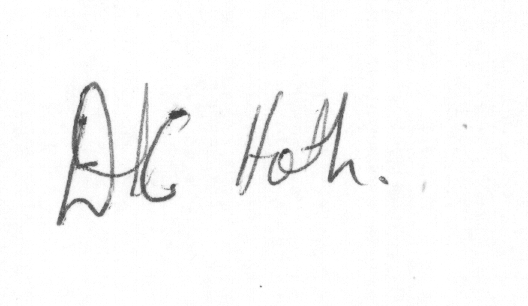 DK Hoth.